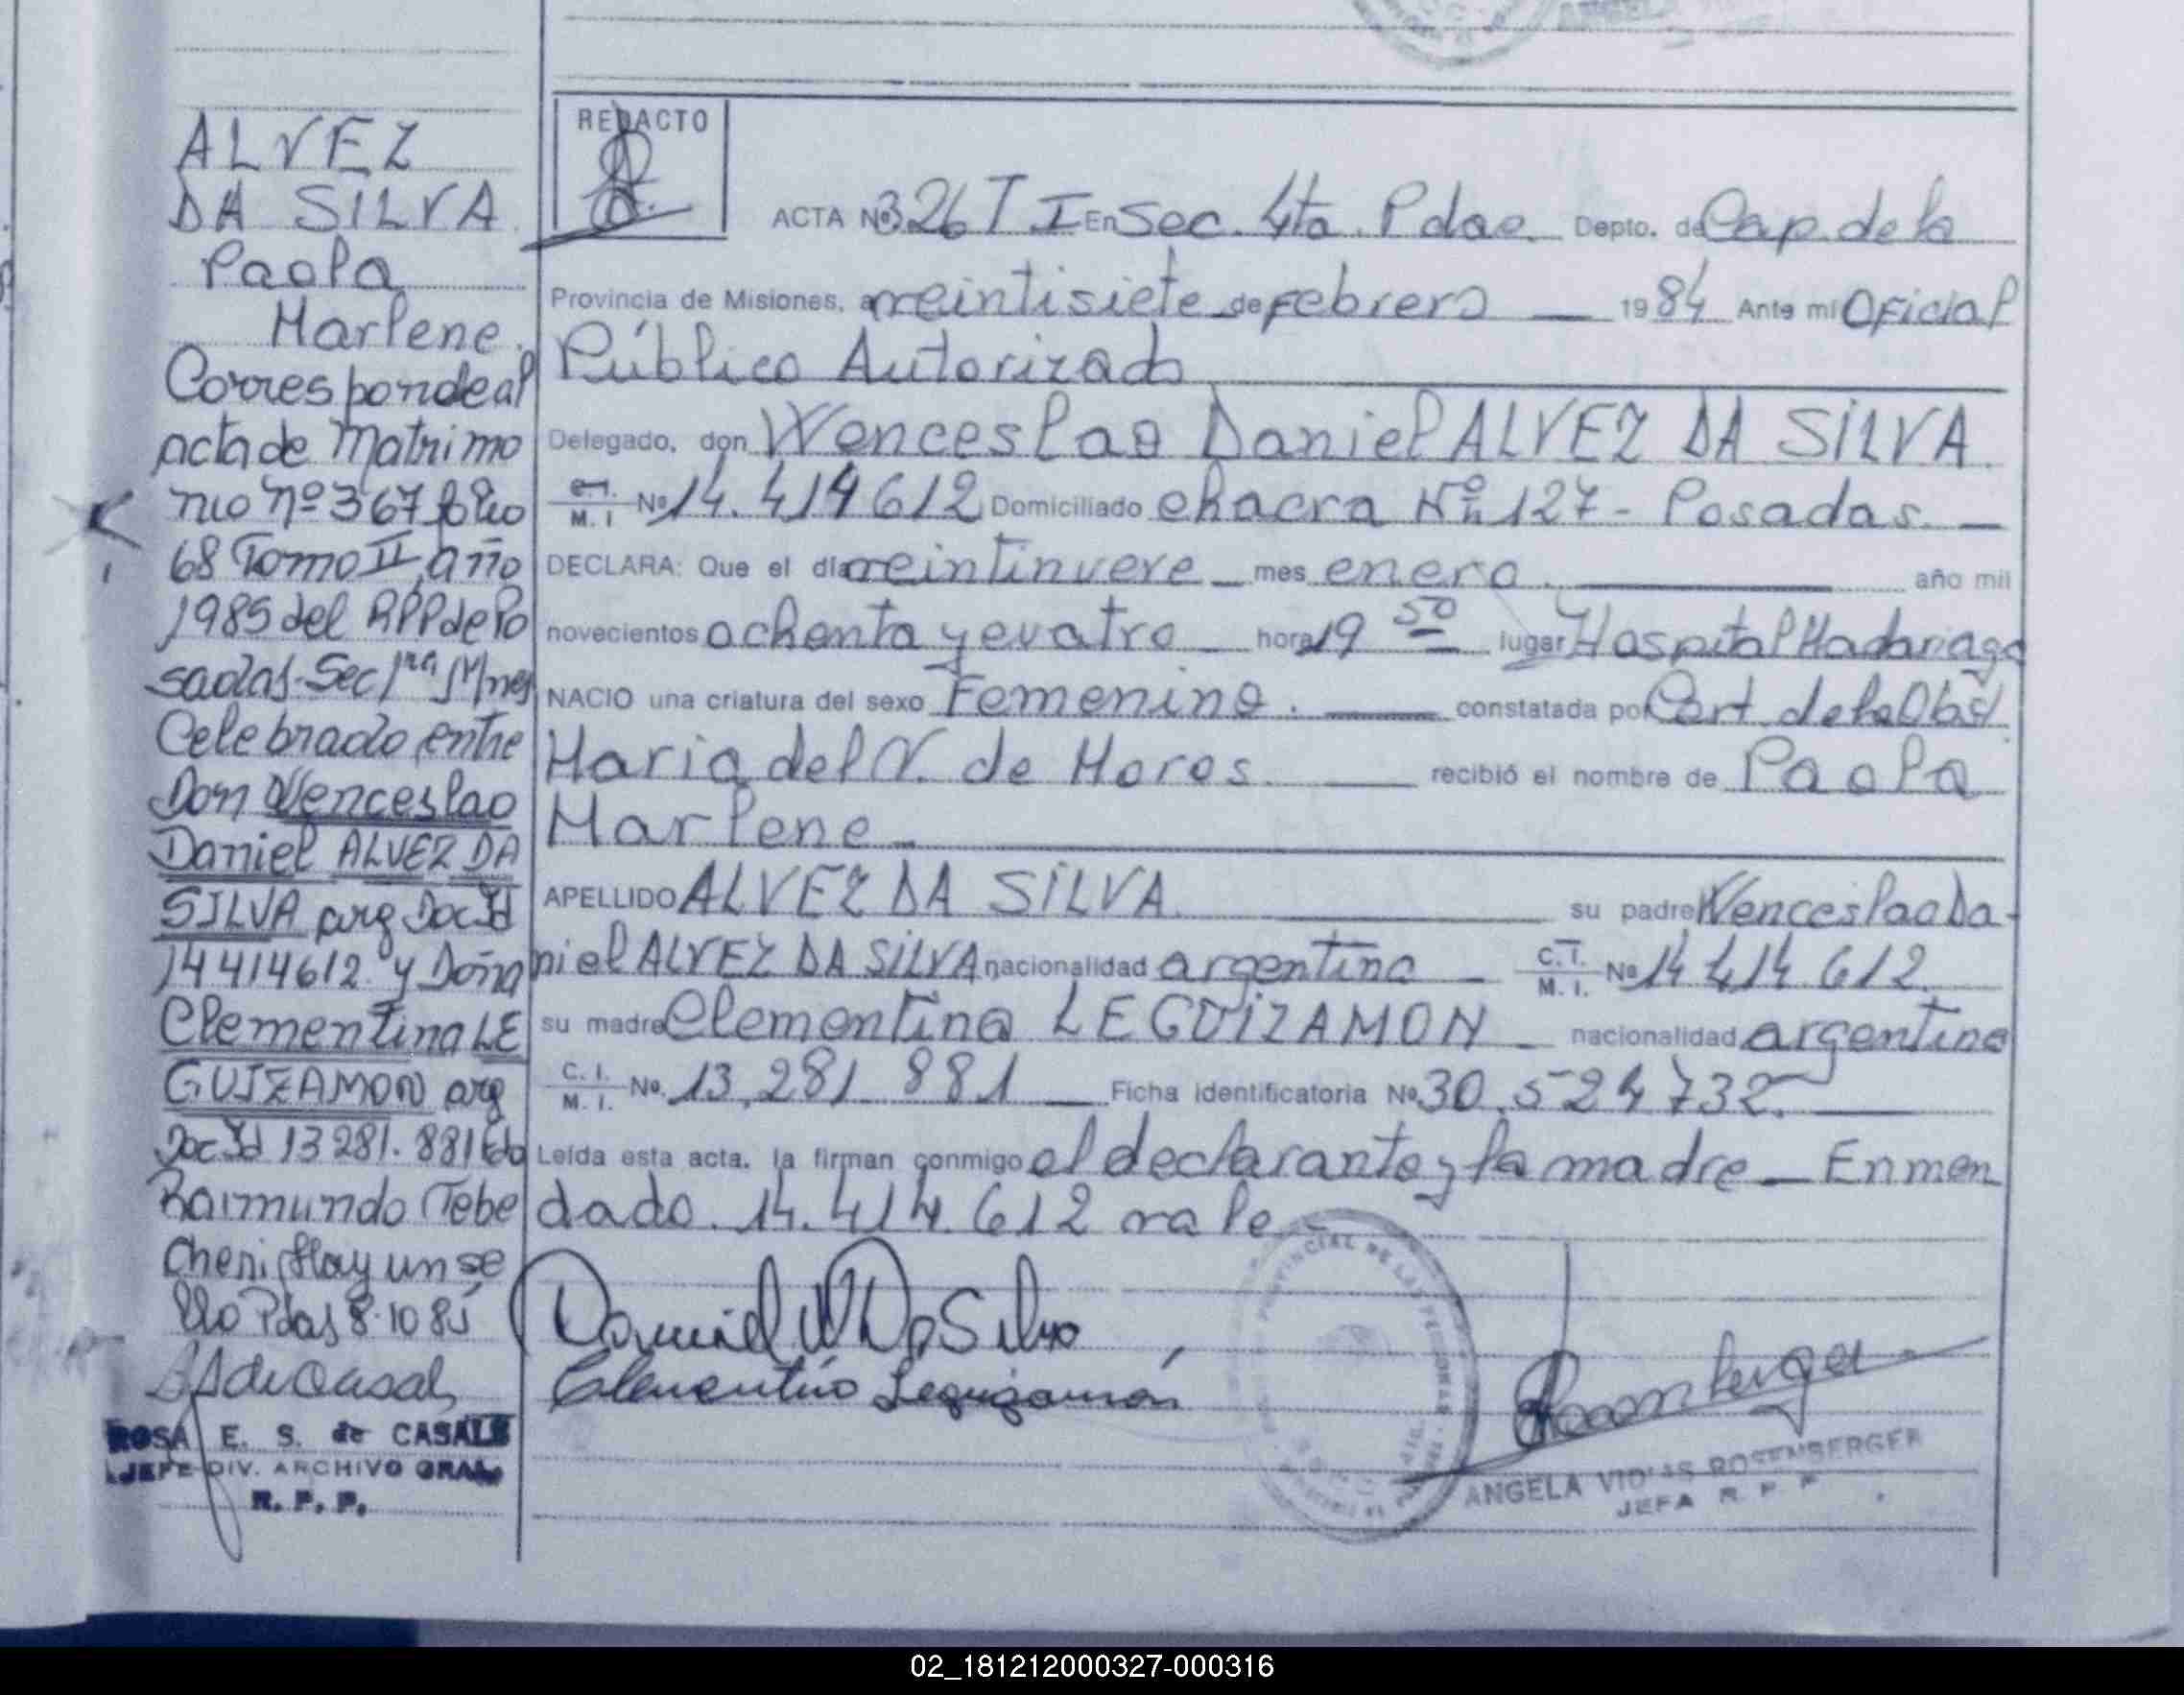 ALVEZ
DA SILVA
Paola
Marlene.
Corresponde al
acta de Matrimo
nio nº 367 folio
68 Tomo II, año
1985 del RPP de Po
sadas-Sec 1ra Mnes
Celebrado entre
Don Wenceslao
Daniel ALVEZ DA
SILVA arg Doc Id
14414612 y Doña
Clementina LE
GUIZAMON arg
Doc Id 13281.881 fdo
Raimundo Tebe
cheri, Hay un se
llo Pdas 8-10 85
ROSA E. S. de CASALS
JEFE DIV. ARCHIVO GRAL.
R. P. P.
REDACTO
ACTA Nº 326 T I En Sec. 4ta. Pdas. Depto. de Cap. de la
Provincia de Misiones, a veintisiete de febrero 1984 Ante mí Oficial
Público Autorizado
Delegado, don Wenceslao Daniel ALVEZ DA SILVA.
M. I Nº 14.414612 Domiciliado chacra Nº 127 - Posadas.
DECLARA: Que el día veintinueve mes enero. año mil
novecientos ochenta y cuatro hora 19 50 lugar Hospital Madariaga
NACIO una criatura del sexo Femenino. constatada por Cert. de la Obst
Maria del V. de Moros. recibió el nombre de Paola
Marlene
APELLIDO ALVEZ DA SILVA su padre Wenceslao Da-
niel ALVEZ DA SILVA nacionalidad argentina C.I. M. I. Nº 14 414.612.
su madre Clementina LEGUIZAMON nacionalidad argentina
C. I. M. I. No. 13,281 881 Ficha identificatoria Nº 30.524732.
Leída esta acta, la firman conmigo el declarante y la madre - Enmen
dado. 14.414.612 vale
Daniel W Da Silva
Clementina Leguizamón
Rosemberger
ANGELA VIDIAS ROSEMBERGER
JEFA R P P
02_181212000327-000316